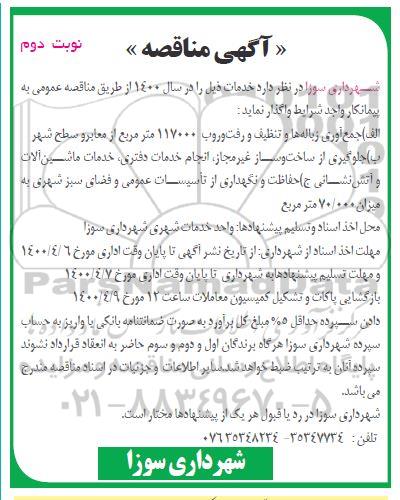 نوبت دوم
« آگهی مناقصه »
شهرداری سوزا در نظر دارد خدمات ذیل را در سال ۱۴۰۰ از طریق مناقصه عمومی به
پیمانکار واجد شرایط واگذار نماید :
الف)جمع‌آوری زباله‌ها و تنظیف و رفت‌وروب ۱۱۷۰۰۰ متر مربع از معابرو سطح شهر
ب)جلوگیری از ساخت‌وساز غیرمجاز، انجام خدمات دفتری، خدمات ماشین‌آلات
و آتش‌نشانی ج)حفاظت و نگهداری از تأسیسات عمومی و فضای سبز شهری به
میزان۷۰/۰۰۰ متر مربع
محل اخذ اسناد وتسلیم پیشنهادها: واحد خدمات شهری شهرداری سوزا
مهلت اخذ اسناد از شهرداری: از تاریخ نشر آگهی تا پایان وقت اداری مورخ ۱۴۰۰/۴/۶
و مهلت تسلیم پیشنهادهابه شهرداری تا پایان وقت اداری مورخ ۱۴۰۰/۴/۷
بازگشایی پاکات و تشکیل کمیسیون معاملات ساعت ۱۲ مورخ ۱۴۰۰/۴/۹
دادن سپرده حداقل ۵% مبلغ کل برآورد به صورت ضمانتنامه بانکی یا واریز به حساب
سپرده شهرداری سوزا هرگاه برندگان اول و دوم و سوم حاضر به انعقاد قرارداد نشوند
سپرده آنان به ترتیب ضبط خواهد شد.سایر اطلاعات و جزئیات در اسناد مناقصه مندرج
می باشد.
شهرداری سوزا در رد یا قبول هر یک از پیشنهادها مختار است.
تلفن: ۳۵۳۴۷۷۳۴- ۳۵۳۴۸۲۳۴ ۰۷۶
شهرداری سوزا
۰۲۱-۸۸۳۴۹۶۷۰-۵